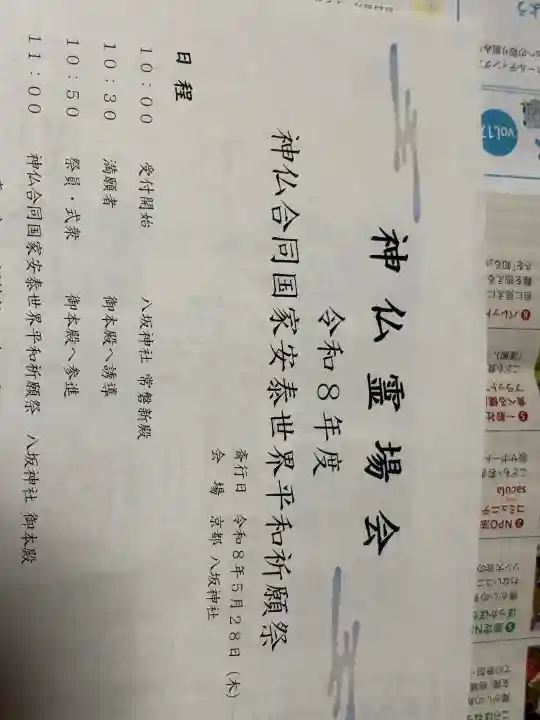 神仏霊場会
令和８年度
神仏合同国家安泰世界平和祈願祭
斎行日 令和８年５月２８日（木）
会 場 京都 八坂神社
日 程
１０：００ 受付開始 八坂神社 常磐新殿
１０：３０ 満願者 御本殿へ誘導
１０：５０ 祭員・式衆 御本殿へ参進
１１：００ 神仏合同国家安泰世界平和祈願祭 八坂神社 御本殿
vol.17
❻パレット
❺一般社
sacula
コミュニテ
❷NPO法